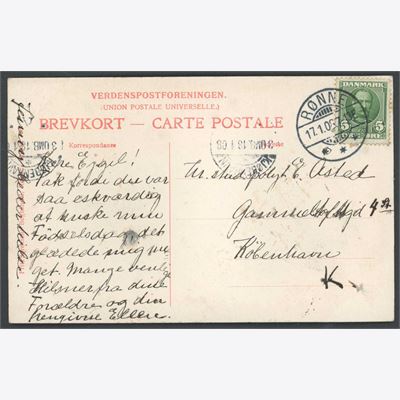 VERDENSPOSTFORENINGEN.
(UNION POSTALE UNIVERSELLE.)
BREVKORT — CARTE POSTALE
Korrespondance
DANMARK
5 5
RØNNE
17.1.09
3 OMB 18 1 09
3 OMB 18 1 09
Kære Eigil!
Tak fordi du var
saa elskværdig
at huske min
Fødselsdag det
glædede mig me
get. Mange venlige
Hilsner fra dine
Forældre og din
hengivne Ellen.
Hr. stud. polyt. E. Østed
4 St
København
K.